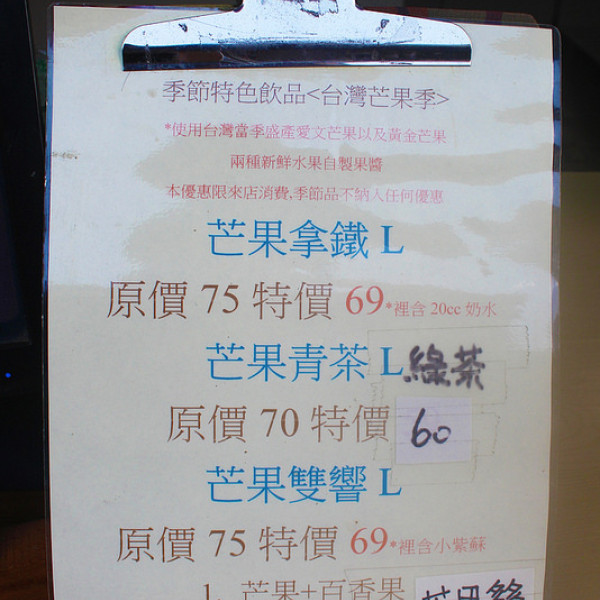 季節特色飲品<台灣芒果季>
*使用台灣當季盛產愛文芒果以及黃金芒果
兩種新鮮水果自製果醬
本優惠限來店消費,季節品不納入任何優惠
芒果拿鐵 L
原價 75 特價 69*裡含 20cc 奶水
芒果青茶 L 綠茶
原價 70 特價 60
芒果雙響 L
原價 75 特價 69*裡含小紫蘇
1. 芒果+百香果